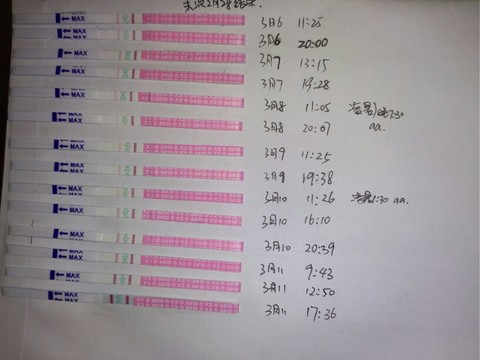 末次2月28结束.
MAX 3月6 11:25
MAX 3月6 20:00
MAX 3月7 13:15
MAX 3月7 19:28
MAX 3月8 11:05
MAX 3月8 20:07 aa.
MAX 3月9 11:25
MAX 3月9 19:38
MAX 3月10 11:26 1:30 aa.
MAX 3月10 16:10
MAX 3月10 20:39
MAX 3月11 9:43
MAX 3月11 12:50
MAX 3月11 17:36